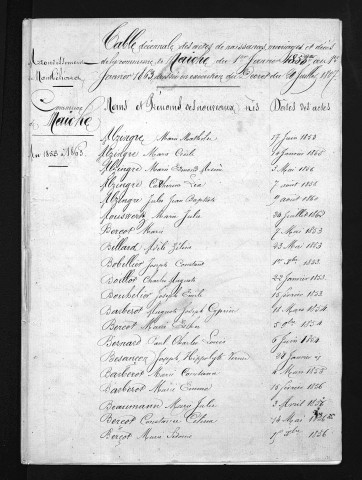 Table décennale des actes de naissances, mariages et décès
Arrondissement
de Montbéliard
de la commune de Maîche du 1er Janvier 1853 au 1er
Janvier 1863 dressée en exécution du Décret du 20 Juillet 1807
Commune
de
Maîche
Noms et Prénoms des nouveaux nés
Dates des actes
An 1853 à 1863
Alzingre Marie Mathilde 17 Juin 1853
Alzingre Marie Cécile Janvier 1855
Alzingre Marie 3 Mai 1856
Alzingre Catherine Léa 7 août 1858
Alzingre Jules Jean Baptiste 1er août 1860
Marie Julie Juillet
Berçot Marie 7 Mai 1853
Billard Adèle Zéline 23 Mai 1853
Bobellier Joseph Constant 1er 1853
Boillot Charles Auguste 22 Janvier 1853
Bouhelier Joseph Emile 15 février 1853
Barberot Auguste Joseph Cyprien 18 Mars 1854
Berçot Marie 5 1854
Bernard Paul Charles Louis 6 Juin 1854
Besançon Joseph Hippolyte 20 Janvier
Barberot Marie Constance 4 Mars 1855
Barberot Marie Emma 15 février 1856
Beaumann Marie Julie 3 Avril 1856
Berçot Constance Célina 14 Mai 1856
Berçot Marie 1er 1856